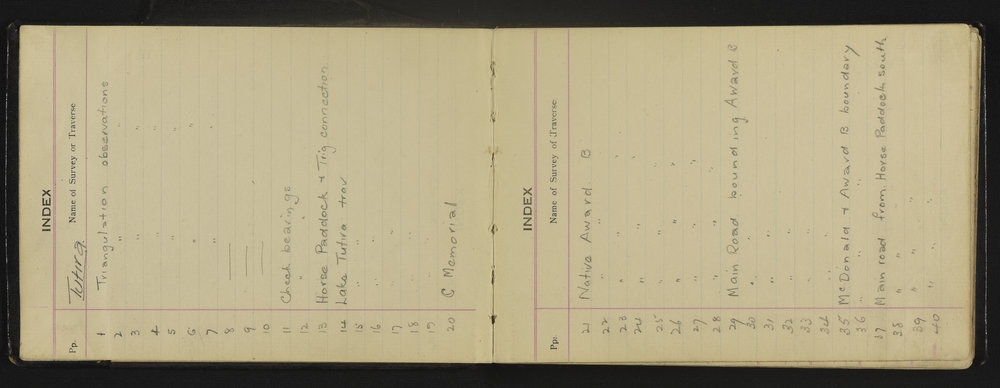 INDEX
Pp. Name of Survey or Traverse
Tutira
1 Triangulation observations
2 " "
3 " "
4 " "
5 " "
6 " "
7 " "
8 ——
9 ——
10 ——
11 Check bearings
12 " "
13 Horse Paddock & Trig connection
14 Lake Tutira trav
15 " "
16 " "
17 " "
18 " "
19 " "
20 C Memorial
INDEX
Pp. Name of Survey of Traverse
21 Native Award B
22 " "
23 " " "
24 " " "
25 " " "
26 " " "
27 " " "
28 " "
29 Main Road bounding Award B
30 " "
31 " "
32 " "
33 " "
34 " "
35 McDonald & Award B boundary
36 " " "
37 Main road from Horse Paddock south
38 " " "
39 " " "
40 " " "